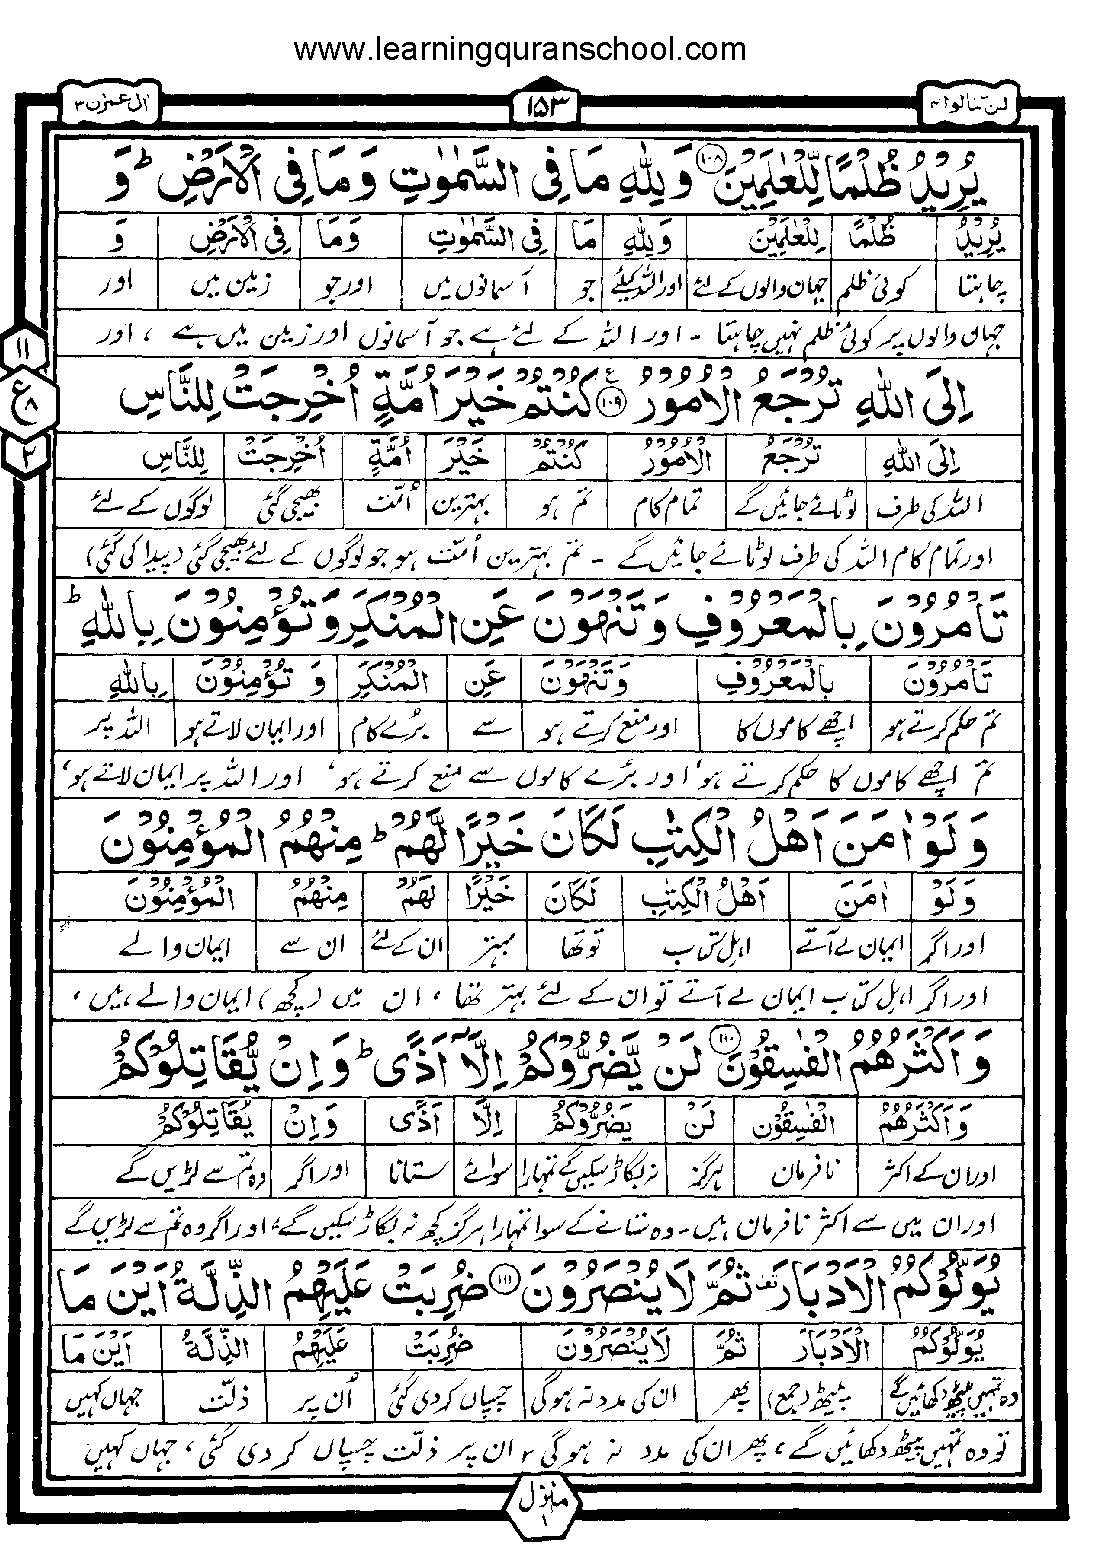 www.learningquranschool.com
لن تنالوا ۴ ۱۵۳ اٰل عمرٰن ۳
يُرِيْدُ ظُلْمًا لِّلْعٰلَمِيْنَ ۱۰۸ وَلِلّٰهِ مَا فِى السَّمٰوٰتِ وَمَا فِى الْاَرْضِ ؕ وَ
يُرِيْدُ ظُلْمًا لِلْعٰلَمِيْنَ وَلِلّٰهِ مَا فِى السَّمٰوٰتِ وَمَا فِى الْاَرْضِ وَ
چاہتا کوئی ظلم جہان والوں کے لئے اور اللہ کیلئے جو آسمانوں میں اور جو زمین میں اور
جہاں والوں پر کوئی ظلم نہیں چاہتا ۔ اور اللہ کے لئے ہے جو آسمانوں اور زمین میں ہے ، اور
۱۱
ع ۸
۲
اِلَى اللّٰهِ تُرْجَعُ الْاُمُوْرُ ۱۰۹ ع كُنْتُمْ خَيْرَ اُمَّةٍ اُخْرِجَتْ لِلنَّاسِ
اِلَى اللّٰهِ تُرْجَعُ الْاُمُوْرُ كُنْتُمْ خَيْرَ اُمَّةٍ اُخْرِجَتْ لِلنَّاسِ
اللہ کی طرف لوٹائے جائیں گے تمام کام تم ہو بہترین اُمت بھیجی گئی لوگوں کے لئے
اور تمام کام اللہ کی طرف لوٹائے جائیں گے ۔ تم بہترین اُمت ہو جو لوگوں کے لئے بھیجی گئی (پیدا کی گئی)
تَاْمُرُوْنَ بِالْمَعْرُوْفِ وَتَنْهَوْنَ عَنِ الْمُنْكَرِ وَتُؤْمِنُوْنَ بِاللّٰهِ ؕ
تَاْمُرُوْنَ بِالْمَعْرُوْفِ وَتَنْهَوْنَ عَنِ الْمُنْكَرِ وَ تُؤْمِنُوْنَ بِاللّٰهِ
تم حکم کرتے ہو اچھے کاموں کا اور منع کرتے ہو سے بُرے کام اور ایمان لاتے ہو اللہ پر
تم اچھے کاموں کا حکم کرتے ہو، اور بُرے کاموں سے منع کرتے ہو، اور اللہ پر ایمان لاتے ہو،
وَلَوْ اٰمَنَ اَهْلُ الْكِتٰبِ لَكَانَ خَيْرًا لَّهُمْ ؕ مِنْهُمُ الْمُؤْمِنُوْنَ
وَلَوْ اٰمَنَ اَهْلُ الْكِتٰبِ لَكَانَ خَيْرًا لَهُمْ مِنْهُمُ الْمُؤْمِنُوْنَ
اور اگر ایمان لے آتے اہل کتاب تو تھا بہتر ان کے لئے ان سے ایمان والے
اور اگر اہل کتاب ایمان لے آتے تو ان کے لئے بہتر تھا ، ان میں (کچھ) ایمان والے ہیں ،
وَاَكْثَرُهُمُ الْفٰسِقُوْنَ ۱۱۰ لَنْ يَّضُرُّوْكُمْ اِلَّاۤ اَذًى ؕ وَاِنْ يُّقَاتِلُوْكُمْ
وَاَكْثَرُهُمُ الْفٰسِقُوْنَ لَنْ يَضُرُّوْكُمْ اِلَّا اَذًى وَاِنْ يُقَاتِلُوْكُمْ
اور ان کے اکثر نافرمان ہرگز نہ بگاڑ سکیں گے تمہارا سوائے ستانا اور اگر وہ تم سے لڑیں گے
اور ان میں سے اکثر نافرمان ہیں ۔ وہ ستانے کے سوا تمہارا ہرگز کچھ نہ بگاڑ سکیں گے، اور اگر وہ تم سے لڑیں گے
يُوَلُّوْكُمُ الْاَدْبَارَ ثُمَّ لَا يُنْصَرُوْنَ ۱۱۱ ضُرِبَتْ عَلَيْهِمُ الذِّلَّةُ اَيْنَ مَا
يُوَلُّوْكُمُ الْاَدْبَارَ ثُمَّ لَا يُنْصَرُوْنَ ضُرِبَتْ عَلَيْهِمُ الذِّلَّةُ اَيْنَ مَا
وہ تمہیں پیٹھ دکھائیں گے پیٹھ (جمع) پھر ان کی مدد نہ ہوگی چسپاں کر دی گئی اُن پر ذلّت جہاں کہیں
تو وہ تمہیں پیٹھ دکھائیں گے ، پھر ان کی مدد نہ ہوگی ، ان پر ذلّت چسپاں کر دی گئی ، جہاں کہیں
منزل ۱